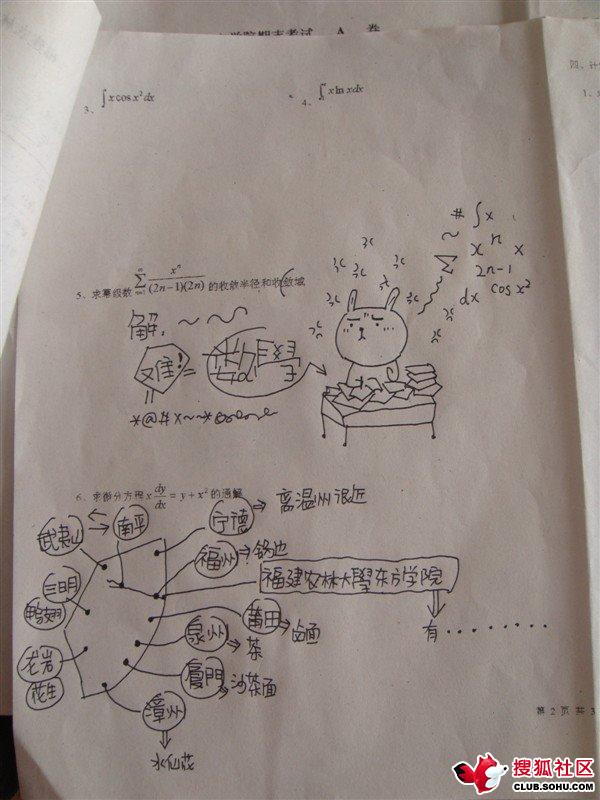 学院期末考试 A 卷
四、计
1、
3、∫ x cos x² dx
4、 x ln x dx
5、求幂级数 ∑ xⁿ/((2n−1)(2n)) 的收敛半径和收敛域
解:~~~
又难! = 数学
*@#x~~*
# ∫ x
~ xⁿ x
2n-1
dx cos x²
6、求微分方程 x dy/dx = y + x² 的通解
武夷山 南平 宁德 ⇒ 离温州很近
福州 ⇒ 锅边
三明 福建农林大學东方学院
鸭翅 莆田 ⇒ 卤面
泉州 ⇒ 茶
有········
龙岩 厦門 沙茶面
花生
漳州
水仙花
第 2 页 共 3
搜狐社区
CLUB.SOHU.COM